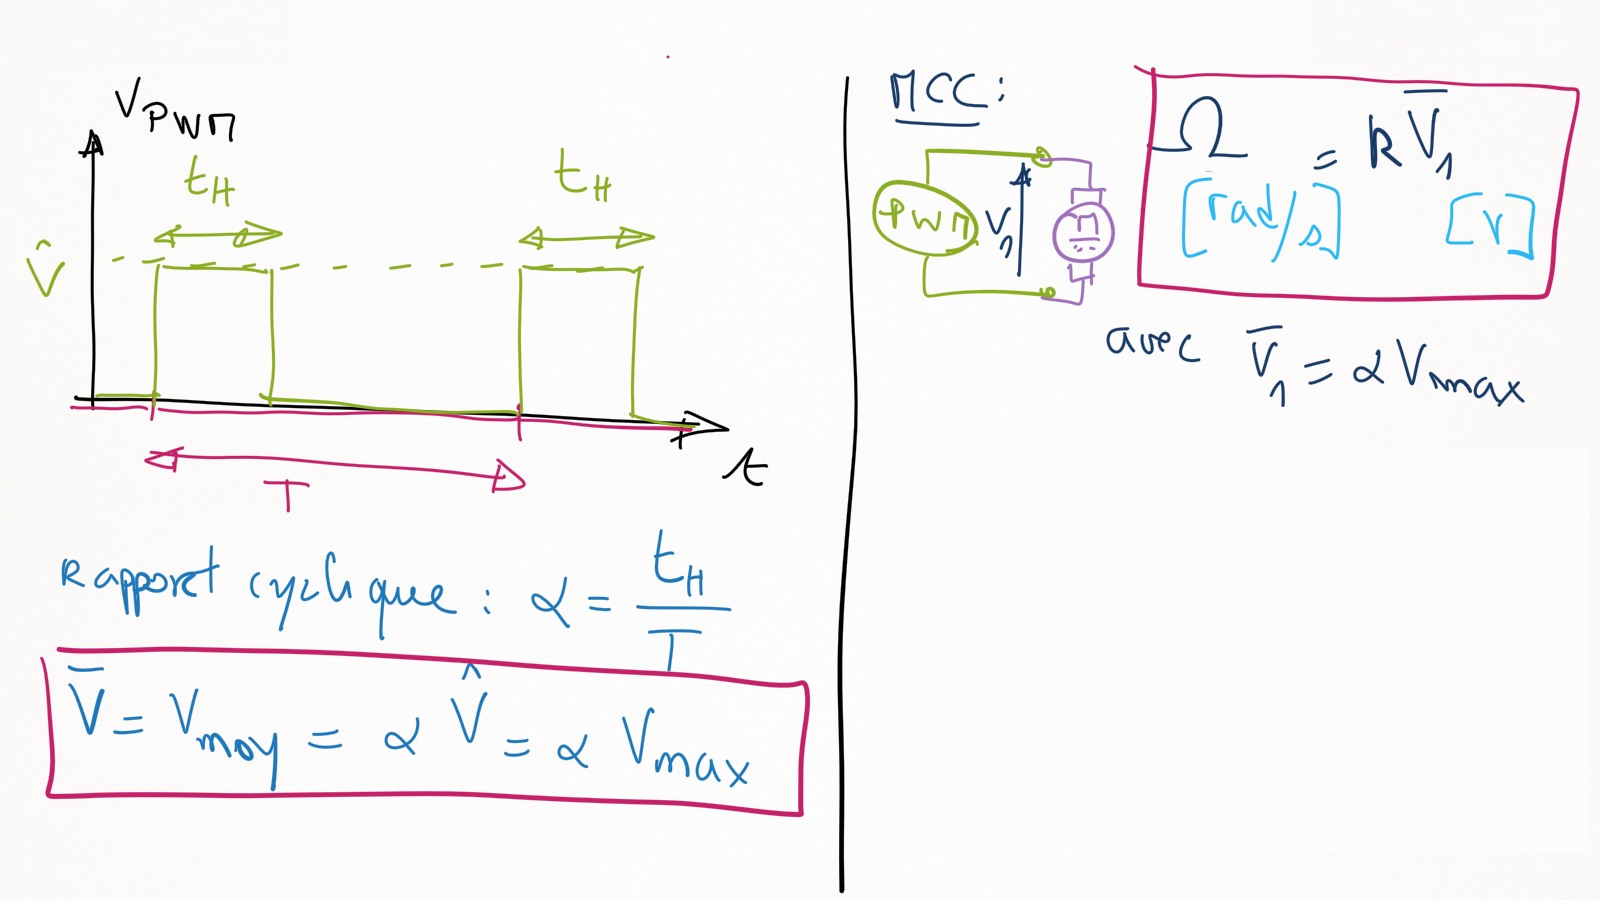 V_PWM
t_H t_H
V̂
T
t
Rapport cyclique : α = t_H / T
V̅ = V_moy = α V̂ = α V_max
MCC :
PWM V_1 M
Ω = k V̅_1
[rad/s] [V]
avec V̅_1 = α V_max